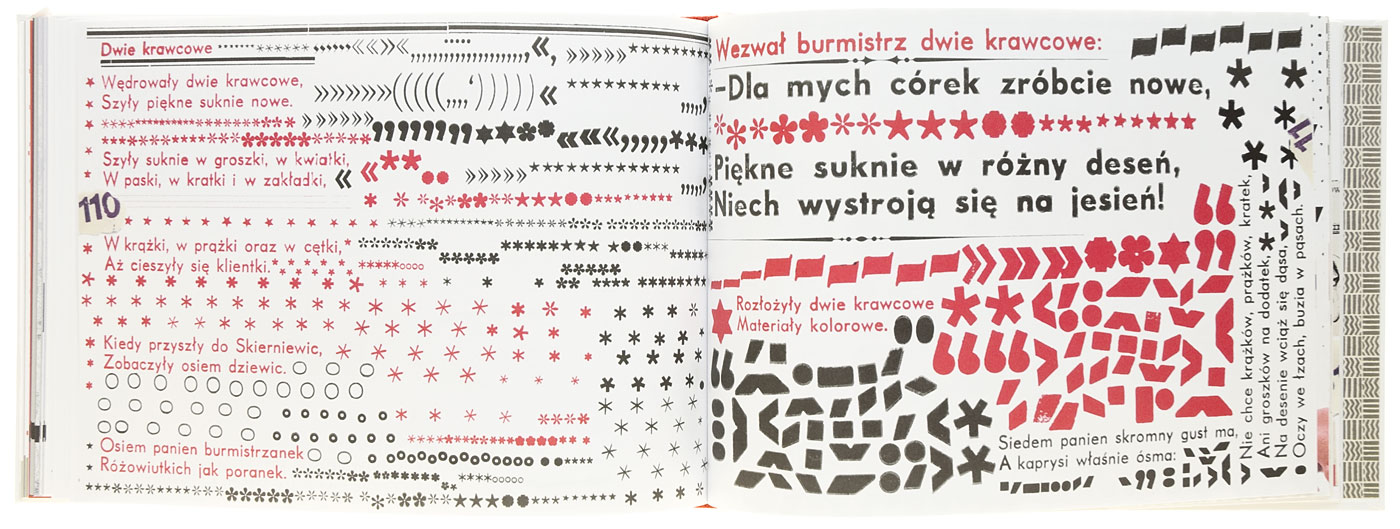 Dwie krawcowe
Wędrowały dwie krawcowe,
Szyły piękne suknie nowe.
Szyły suknie w groszki, w kwiatki,
W paski, w kratki i w zakładki,
110
W krążki, w prążki oraz w cętki,
Aż cieszyły się klientki.
Kiedy przyszły do Skierniewic,
Zobaczyły osiem dziewic.
Osiem panien burmistrzanek
Różowiutkich jak poranek.
Wezwał burmistrz dwie krawcowe:
–Dla mych córek zróbcie nowe,
Piękne suknie w różny deseń,
Niech wystroją się na jesień!
Rozłożyły dwie krawcowe
Materiały kolorowe.
Siedem panien skromny gust ma,
A kaprysi właśnie ósma:
Nie chce krążków, prążków, kratek,
Ani groszków na dodatek,
Na desenie wciąż się dąsa,
Oczy we łzach, buzia w pąsach.